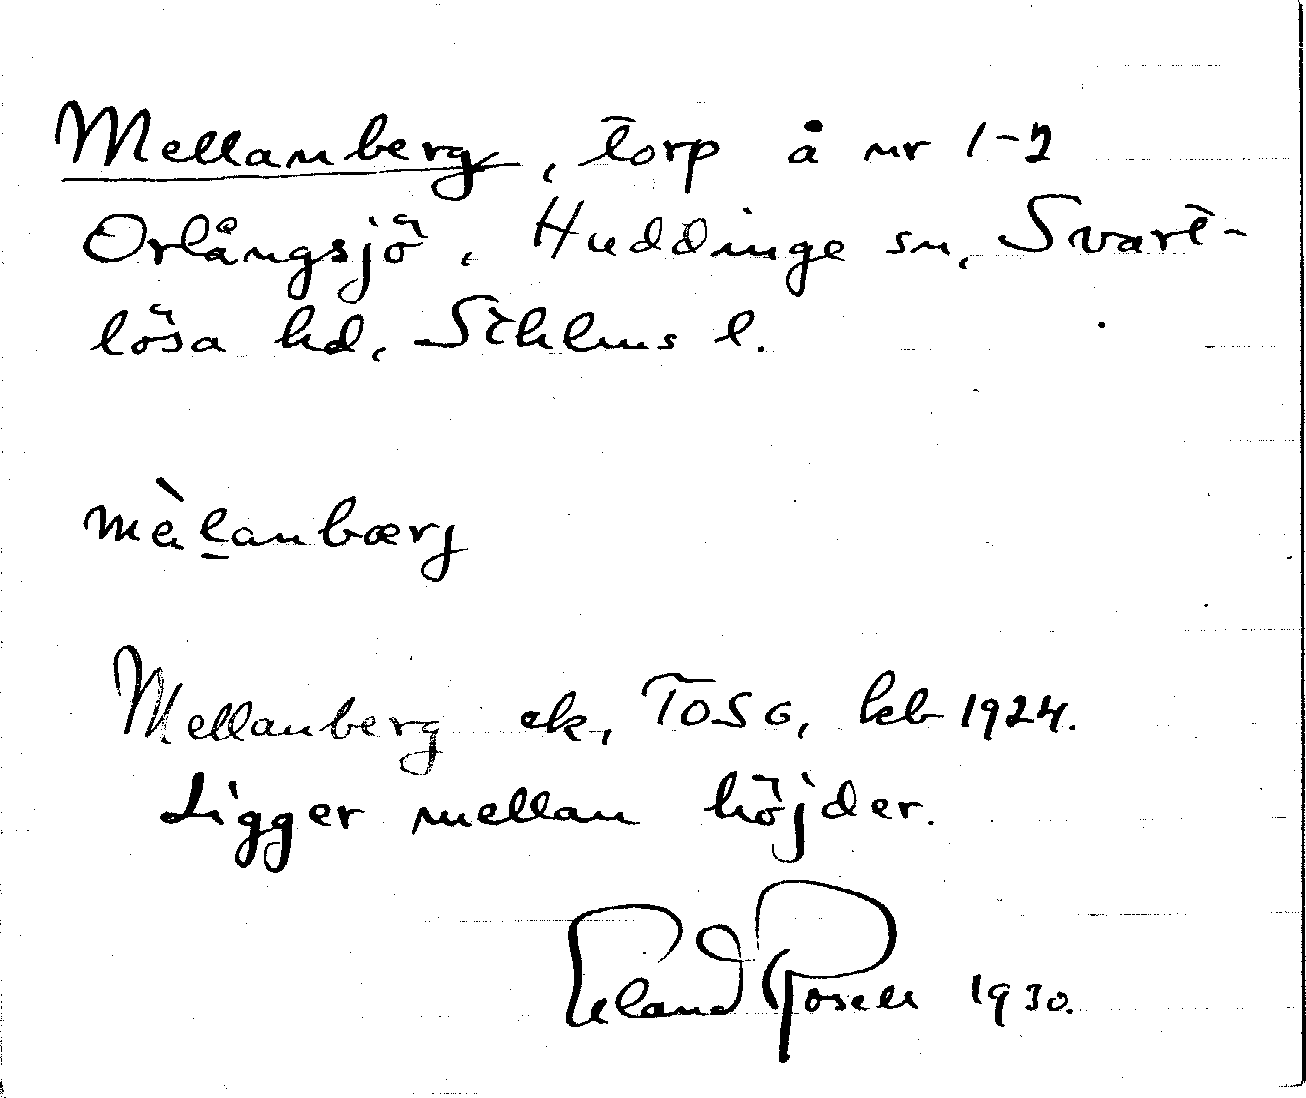 Mellanberg, torp å nr 1-2
Orlångsjö, Huddinge sn, Svart-
lösa hd, Sthlms l.
mèlanbærj
Mellanberg ek, TOSG, kb 1924.
Ligger mellan höjder.
Erland Rosell 1930.